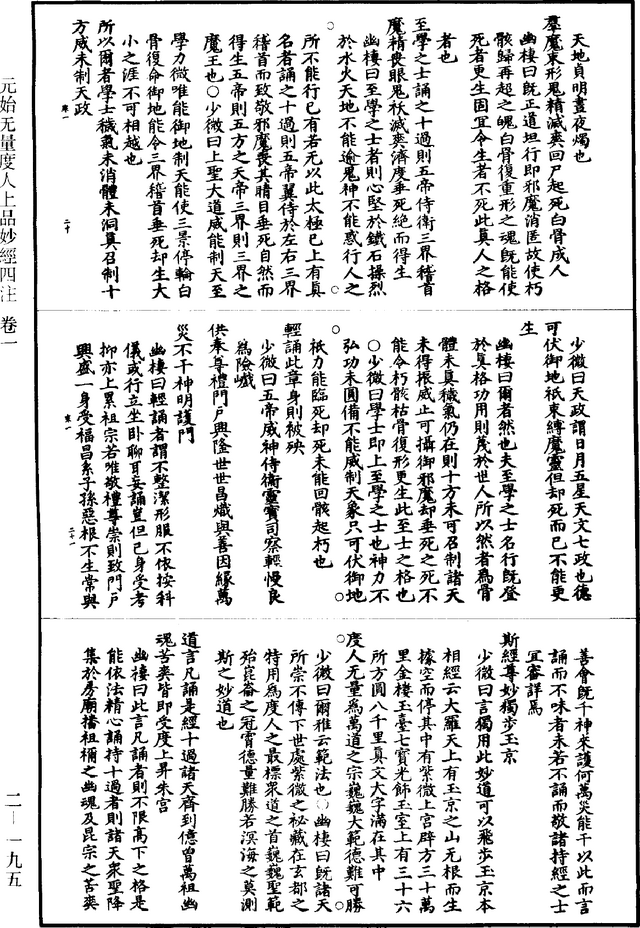 天地貞明晝夜燭也
羣魔束形鬼精滅爽回尸起死白骨成人
幽棲曰既正道坦行即邪魔消匿故使朽
骸歸再起之魄白骨復重形之魂既能使
死者更生固宜令生者不死此真人之格
者也
至學之士誦之十過則五帝侍衛三界稽首
魔精喪眼鬼妖滅爽濟度垂死絕而得生
幽棲曰至學之士者則心堅於鐵石操烈
於水火天地不能逾鬼神不能惑行人之
所不能行已有若无以此太極已上有真
名者誦之十過則五帝翼侍於左右三界
稽首而致敬邪魔喪其睛目垂死自然而
得生五帝則五方之天帝三界則三界之
魔王也○少微曰上聖大道威能制天至
學力微唯能御地制天能使三景停輪白
骨復命御地能令三界稽首垂死却生大
小之涯不可相越也
所以爾者學士穢氣未消體未洞真召制十
方威未制天政
卷一
二十
少微曰天政謂日月五星天文七政也德
可伏御地祇束縛魔靈但却死而已不能更
生
幽棲曰爾者然也夫至學之士名行既登
於真格功用則茂於世人所以然者爲骨
體未真穢氣仍在則十方未可召制諸天
未得振威止可攝御邪魔却垂死之死不
能令朽骸枯骨復形更生此至士之格也
○少微曰學士即上至學之士也神力不
弘功未圓備不能威制天象只可伏御地
祇力能臨死却死未能回骸起朽也
輕誦此章身則被殃
少微曰五帝威神侍衛靈寶司察輕慢良
爲險巇
供奉尊禮門戶興隆世世昌熾與善因緣萬
災不干神明護門
幽棲曰輕誦者謂不整潔形服不依按科
儀或行立坐臥聊耳妄誦豈但已身受考
抑亦上累祖宗若唯敬禮尊崇則致門戶
興盛一身受福昌系子孫惡根不生常與
卷一
二十一
善會既千神來護何萬災能干以此而言
誦而不味者未若不誦而敬諸持經之士
宜審詳焉
斯經尊妙獨步玉京
少微曰言獨用此妙道可以飛步玉京本
相經云大羅天上有玉京之山无根而生
據空而停其中有紫微上宮辟方三十萬
里金樓玉臺七寶光飾玉室上有三十六
所方圓八千里真文大字滿在其中
度人无量爲萬道之宗巍巍大範德難可勝
少微曰爾雅云範法也○幽棲曰既諸天
所崇不傳下世處紫微之祕藏在玄都之
特用爲度人之最標衆道之首巍巍聖範
殆崑崙之冠霄德量難勝若溟海之莫測
斯之妙道也
道言凡誦是經十過諸天齊到億曾萬祖幽
魂苦爽皆即受度上昇朱宮
幽棲曰此言凡誦者則不限高下之格是
能依法精心誦持十過者則諸天衆聖降
集於房廟禱祖禰之幽魂及昆宗之苦爽
元始无量度人上品妙經四注 卷一
二—一九五